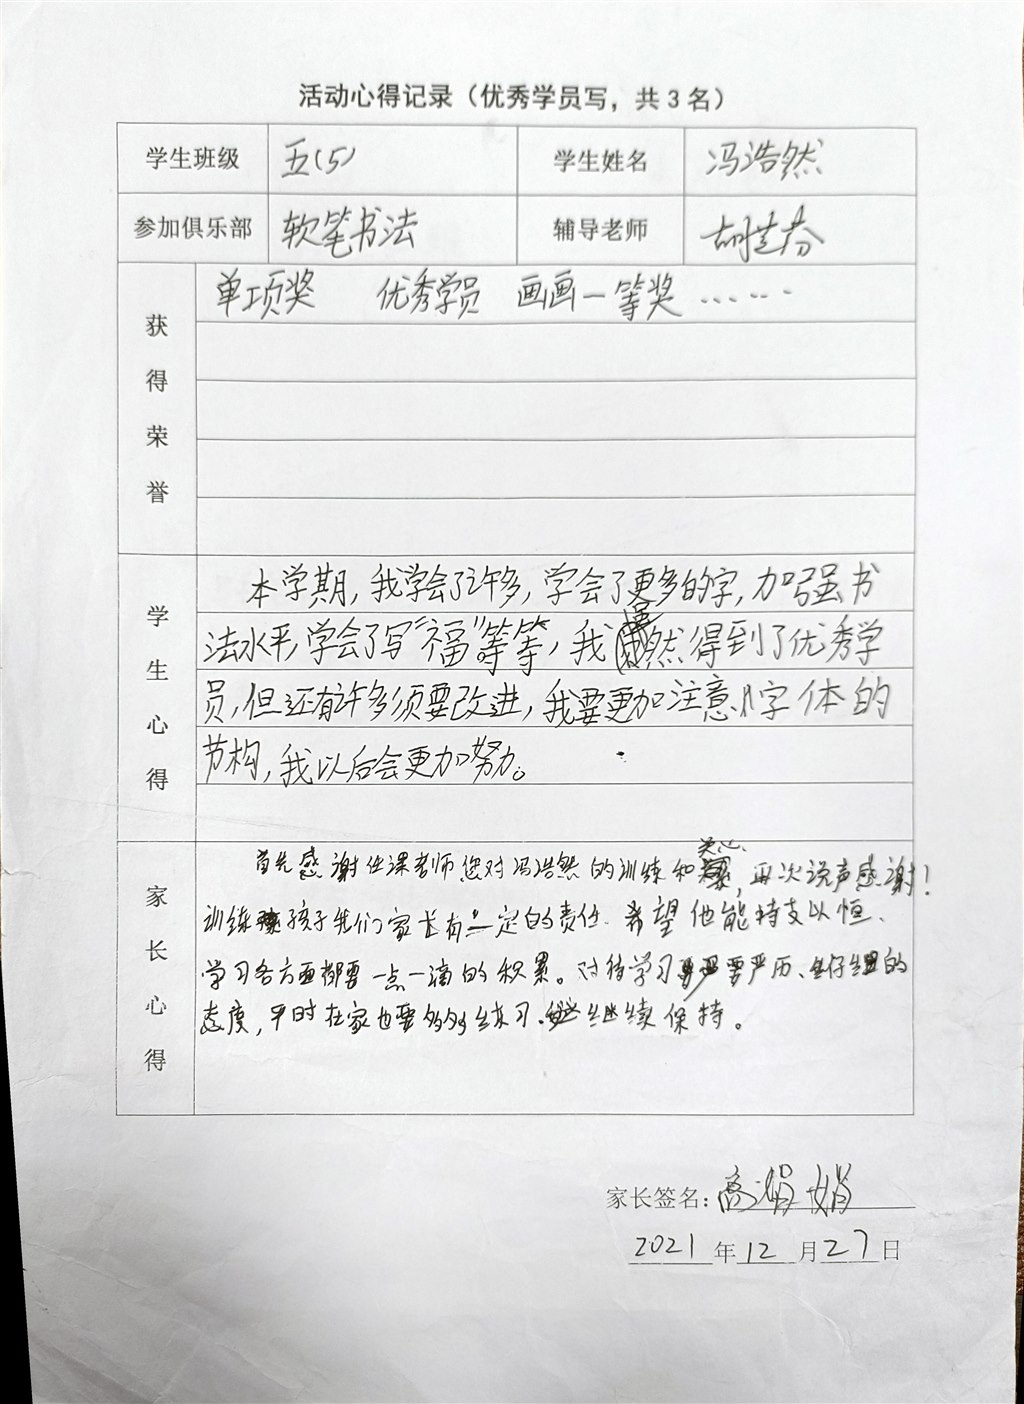 活动心得记录（优秀学员写，共3名）
学生班级 五(5) 学生姓名 冯浩然
参加俱乐部 软笔书法 辅导老师
获得荣誉
单项奖 优秀学员 画画一等奖 ……
学生心得
本学期，我学会了许多，学会了更多的字，加强书
法水平，学会了写“福”等等，我虽然得到了优秀学
员，但还有许多须要改进，我要更加注意字体的
节构，我以后会更加努力。
家长心得
首先感谢任课老师您对冯浩然的训练和关心，再次说声感谢！
训练孩子我们家长有一定的责任、希望他能持支以恒、
学习各方面都要一点一滴的积累。对待学习要严历、仔细的
态度，平时在家也要多多练习、继续保持。
家长签名：高娟娟
2021年12月27日